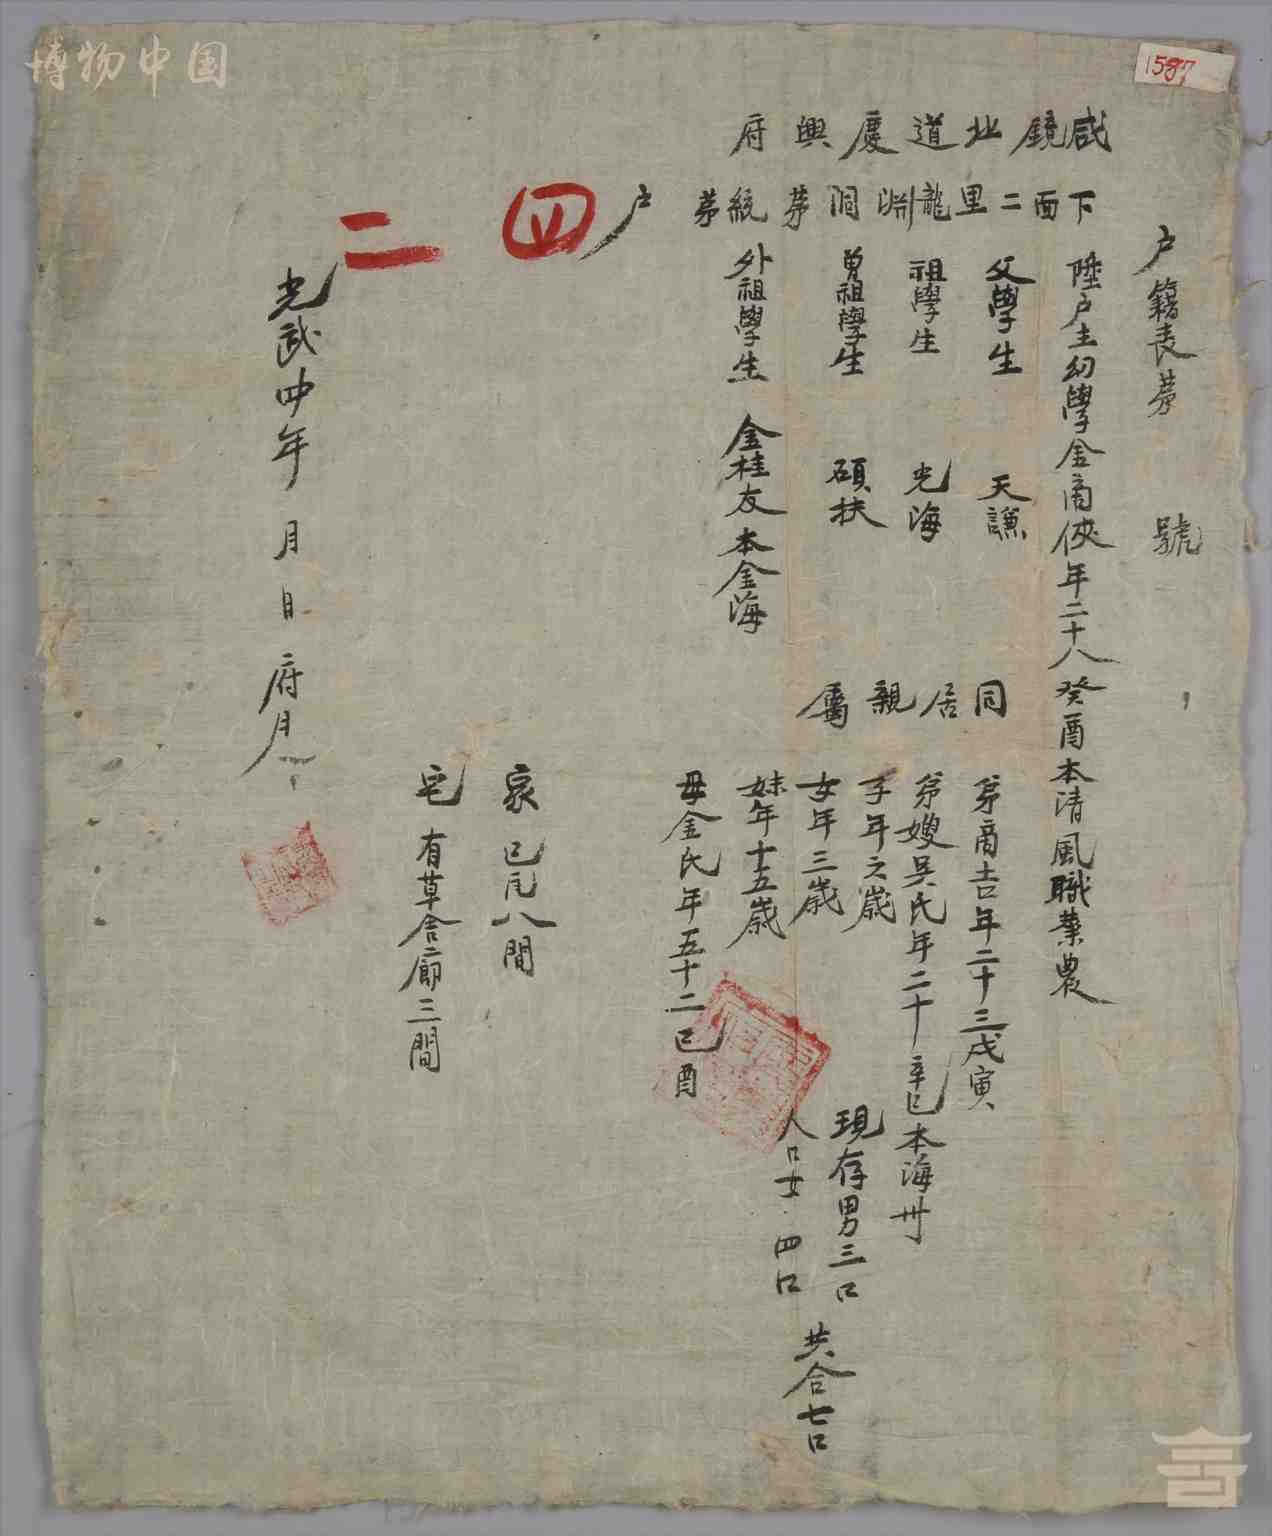 博物中国
1587
戶籍表苐 號
咸鏡北道慶興府
下面二里龍淵洞苐 統苐 戶
陸戶主幼學金商俠年二十八癸酉本清風職業農
父學生 天謙
祖學生 光海
曾祖學生 碩扶
外祖學生 金桂友 本金海
四
二
同居親屬
弟商吉年二十三戊寅
弟嫂吳氏年二十辛巳本海州
子年二歲
女年三歲
妹年十五歲
母金氏年五十二己酉
現存男三口
人口女四口
共合七口
家 己瓦八間
宅 有草舍廊三間
光武四年 月 日 府